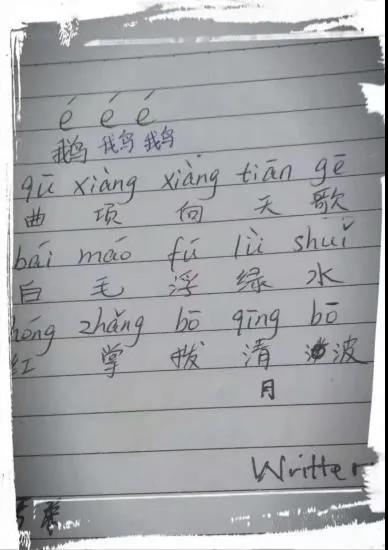 é é é
鹅 鹅 鹅
qū xiàng xiàng tiān gē
曲 项 向 天 歌
bái máo fú lǜ shuǐ
白 毛 浮 绿 水
hóng zhǎng bō qīng bō
红 掌 拨 清 波
月
Writter